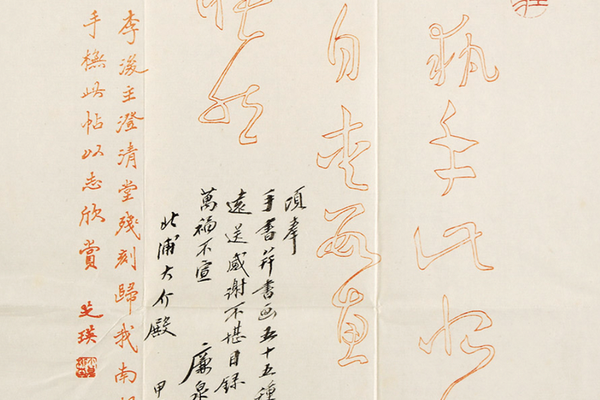 執手此恨
自愛數惠
悵然
頃奉
手書并書画五十五種
遠送感謝不堪目録
萬福不宣
廉泉
北浦大介殿
甲
李後主澄清堂殘刻歸我南
手橅此帖以志欣賞 芝瑛